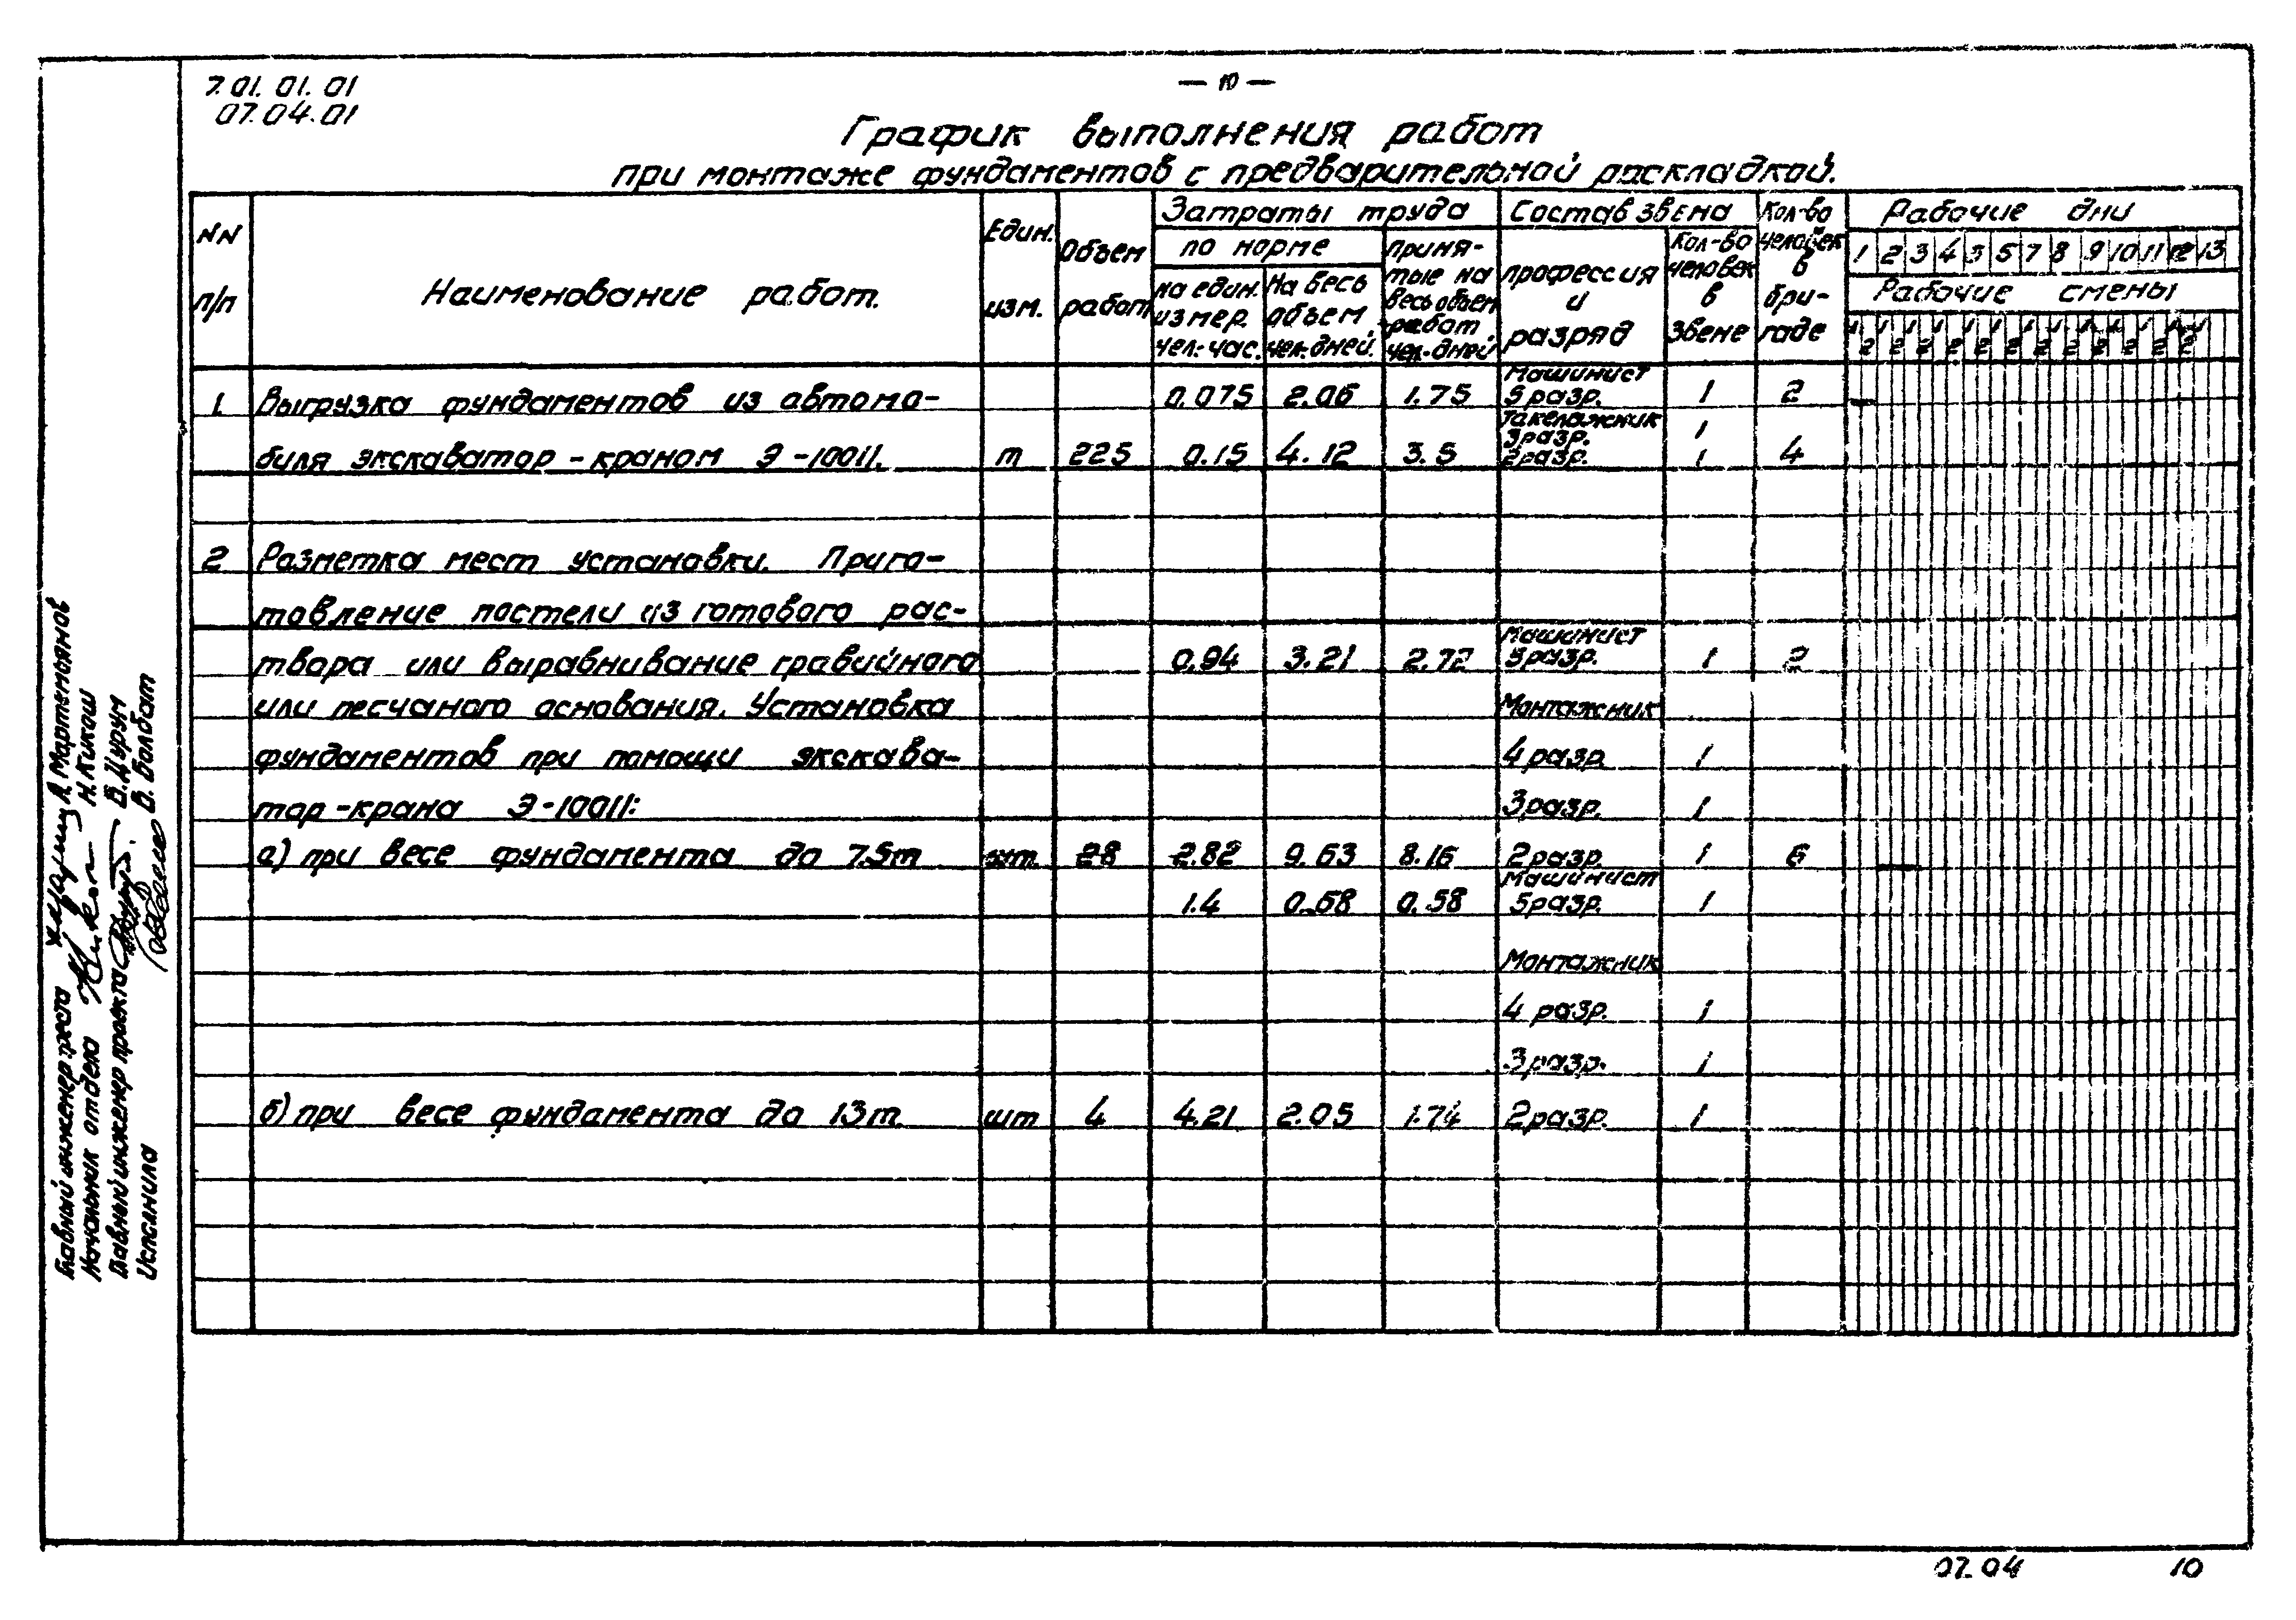 7.01.01.01
07.04.01
— 10 —
График выполнения работ
при монтаже фундаментов с предварительной раскладкой.
NN п/п
Наименование работ.
Един. изм.
Объем работ
Затраты труда
по норме
на един. измер. чел.-час.
На весь объем, чел.дней.
приня-
тые на весь объем работ чел-дней
Состав звена
профессия и разряд
Кол-во человек в звене
Кол-во человек в бри-
гаде
Рабочие дни
1 2 3 4 5 5 7 8 9 10 11 12 13
Рабочие смены
1 2 1 2 1 2 1 2 1 2 1 2 1 2 1 2 1 2 1 2 1 2 1 2 1
Машинист
1 Выгрузка фундаментов из автомо- 0.075 2.06 1.75 5 разр. 1 2
Такелажник
3разр. 1
биля экскаватор-краном Э-10011. т 225 0.15 4.12 3.5 2разр. 1 4
2 Разметка мест установки. Приго-
товление постели из готового рас-
Машинист
твора или выравнивание гравийного 0.94 3.21 2.72 5разр. 1 2
или песчаного основания. Установка Монтажник
фундаментов при помощи экскава- 4 разр. 1
тор-крана Э-10011: 3разр. 1
а) при весе фундамента до 7.5т шт. 28 2.82 9.63 8.16 2разр. 1 6
Машинист
1.4 0.68 0.58 5разр. 1
Монтажник
4 разр. 1
3разр. 1
б) при весе фундамента до 13т. шт 4 4.21 2.05 1.74 2разр. 1
Главный инженер треста А. Мартемьянов
Начальник отдела Н. Кикош
Главный инженер проекта В. Цурум
Исполнила В. Болбат
07.04 10